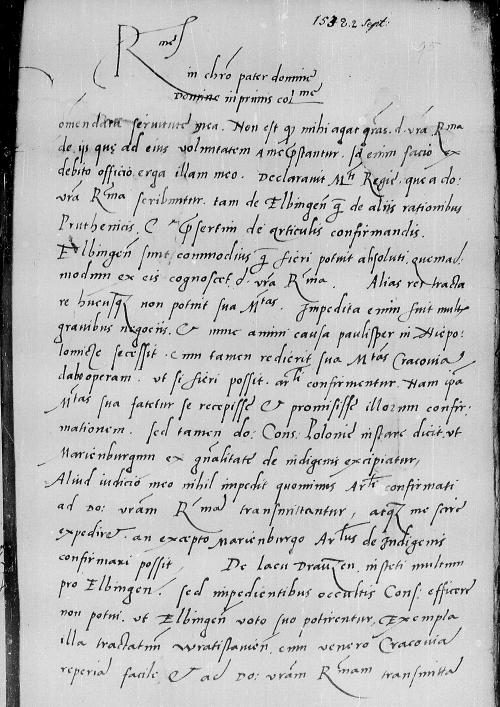 1538 2 Sept:
R me
in chro pater domine
Domine inprimis col me
omendata servitute mea. Non est qd mihi agat gras. d. vra Rma
de ijs que ad eius voluntatem a me prestantur. Id enim facio ex
debito officio erga illam meo. Declaravit Mti Regie. que a do:
vra Rma scribuntur. tam de Elbingen qz de aliis rationibus
Pruthenicis. & presertim de articulis confirmandis.
Elbingen sunt commodius qz fieri potuit absoluti, quemad.
modum ex eis cognoscet d. vra Rma. Alias res tracta
re hucusqz non potuit sua Mtas. Impedita enim fuit multis
gravibus negociis. & nunc animi causa paulisper in Niepo-
lomicze secessit. cum tamen redierit sua Mtas Cracoviam
dabo operam. ut si fieri possit. arli confirmentur. Nam ipsa
Mtas sua fatetur se recepisse & promisisse illorum confir-
mationem. sed tamen do: Cons: Polonie instare dicit, ut
Marienburgum ex gnalitate de indigenis excipiatur,
Aliud iudicio meo nihil impedit quominus Arli confirmati
ad Do: vram Rma transmittantur, atqz me scire
expedire. an excepto Marienburgo Arlus de Indigenis
confirmari possit. De lacu Drauzen. institi multum
pro Elbingen. sed impedientibus occultis Cons: efficere
non potui. ut Elbingen voto suo potirentur, Exempla
illa tractatuum Wratislavien. cum venero Cracoviam
reperiam facile. & ad Do: vram Rmam transmittam